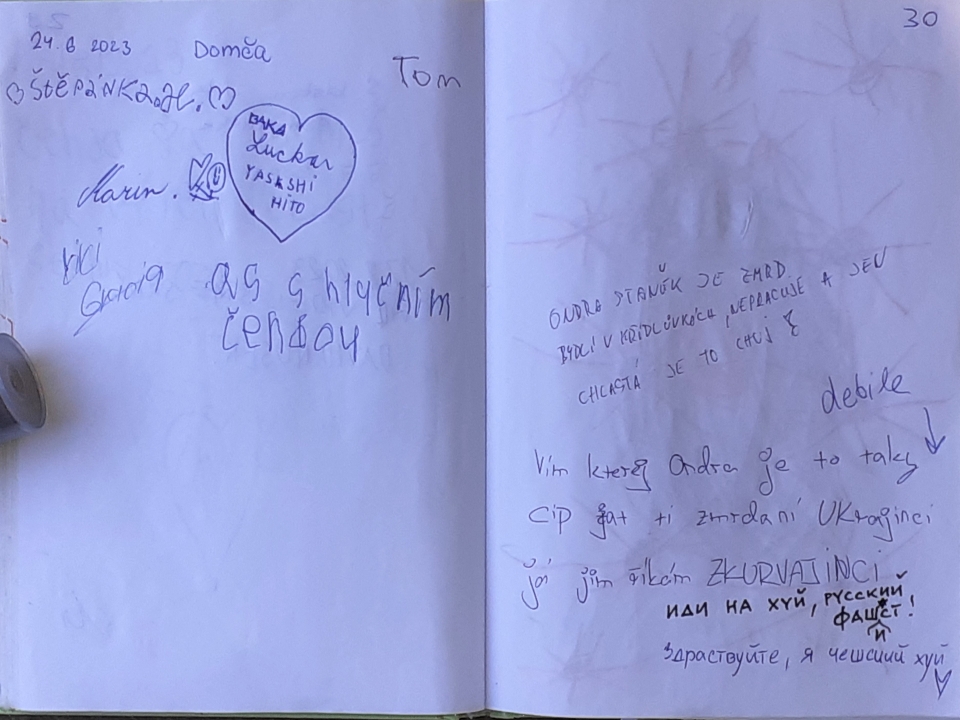 24. 6 2023
Doměa
Tom
♡ŠtěPáNKa.H.♡
BAKA
Luckar
YASASHI
HITO
Marin.
as s hlučním
čendou
30
ONDRA STANĚK JE ZMRD
BYDLÍ V KŘÍDLŮVKÁCH, NEPRACUJE A JEN
CHCASTÁ JE TO CHUJ
debile
Vím kterej Ondra je to taky
cip jat ti zmrdaní UKrajinci
já jim říkám ZKURVAJINCI
ИДИ НА ХУЙ, РУССКИЙ
ФАШИСТ!
Здраствуйте, я чешсиий хуй